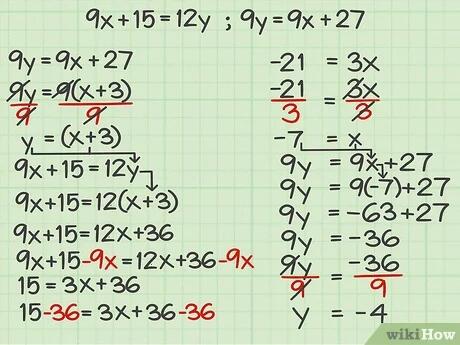 9x+15=12y ; 9y=9x+27
9y=9x+27
9y/9=9(x+3)/9
y=(x+3)
9x+15=12y
9x+15=12(x+3)
9x+15=12x+36
9x+15-9x=12x+36-9x
15=3x+36
15-36=3x+36-36
-21 = 3x
-21/3 = 3x/3
-7 = x
9y = 9x+27
9y = 9(-7)+27
9y = -63+27
9y = -36
9y/9 = -36/9
y = -4
wikiHow